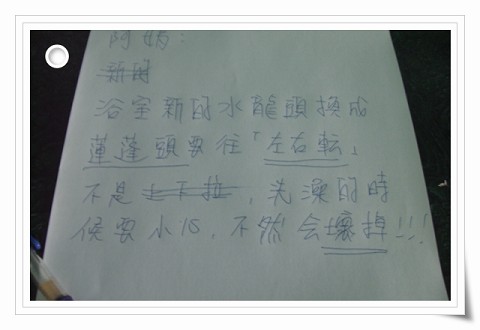 阿娟:
新的
浴室新的水龍頭換成
蓮蓬頭要往「左右転」
不是上下拉,洗澡的時
候要小心,不然会壞掉!!!